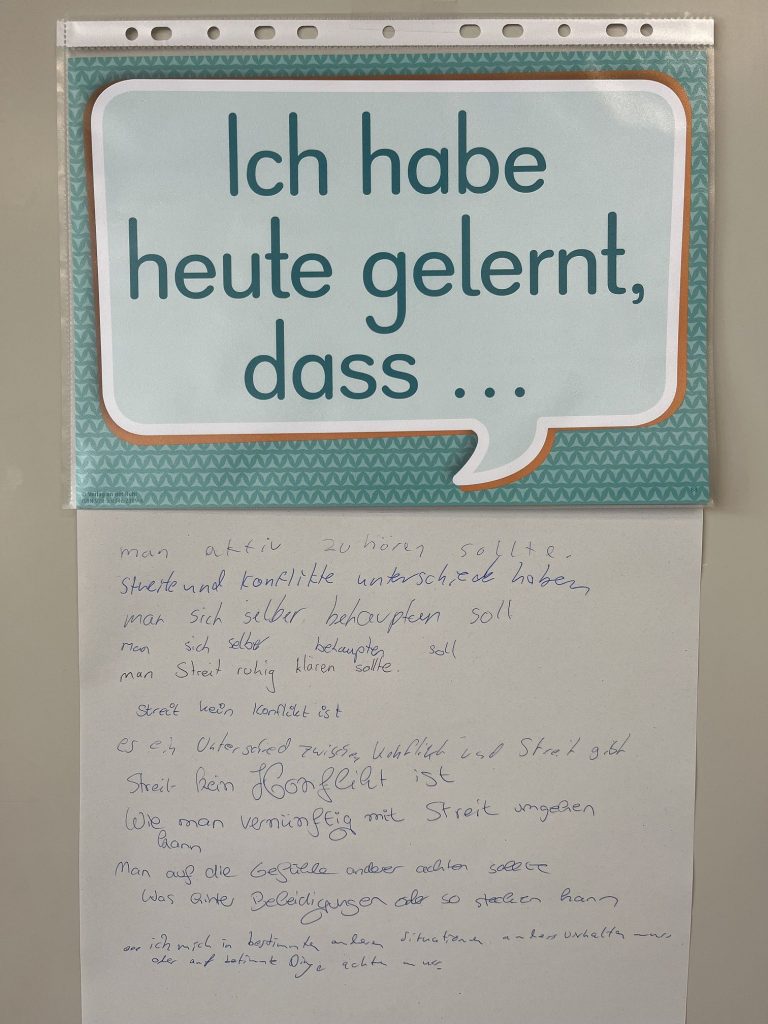 Ich habe
heute gelernt,
dass ...
© Verlag an der Ruhr
man aktiv zuhören sollte.
Streite und Konflikte unterschiede haben
man sich selber behaupten soll
Man sich selber behaupten soll
man Streit ruhig klären sollte.
Streit kein Konflikt ist
es ein Unterschied zwischen Konflikt und Streit gibt
Streit kein Konflikt ist
Wie man vernünftig mit Streit umgehen
kann
Man auf die Gefühle anderer achten sollte
Was hinter Beleidigungen oder so stecken kann
ich mich in bestimmten anderen Situationen anders verhalten muss
oder auf bestimmte Dinge achten muss.